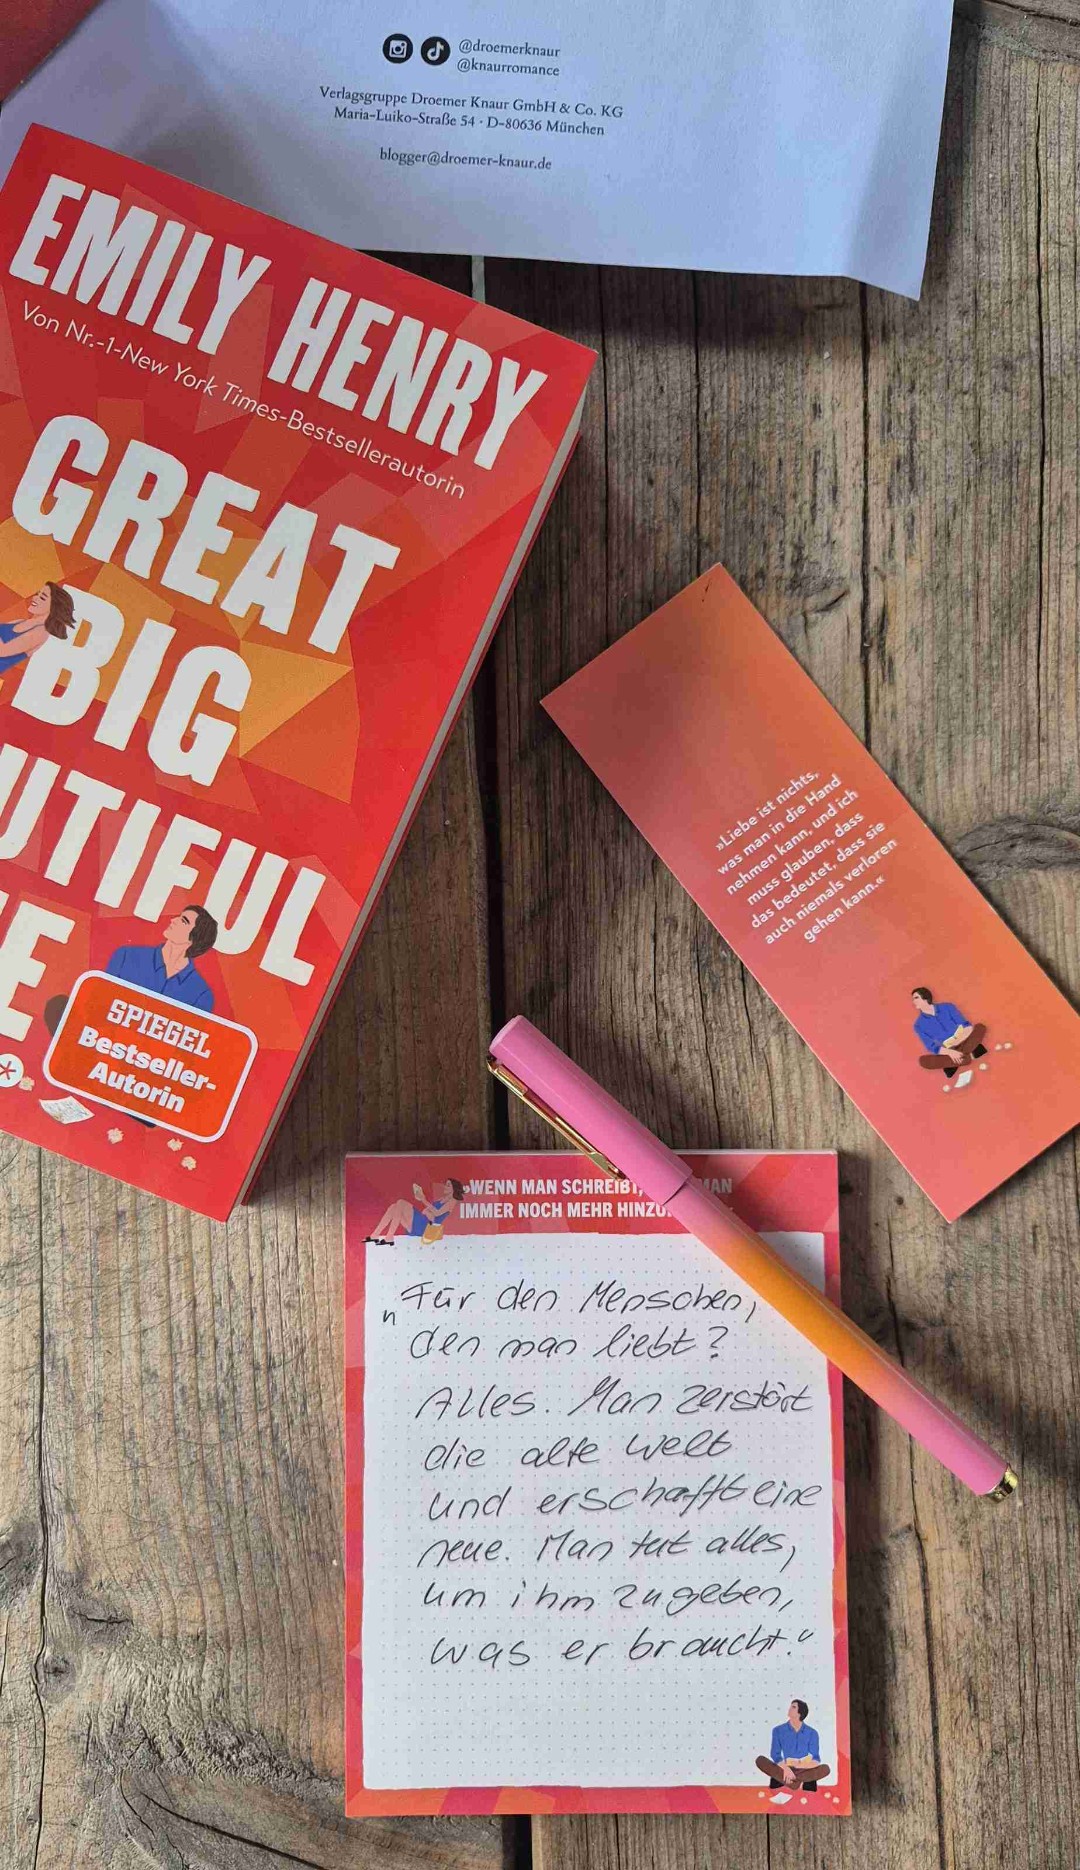 @droemerknaur
@knaurromance
Verlagsgruppe Droemer Knaur GmbH & Co. KG
Maria-Luiko-Straße 54 · D-80636 München
blogger@droemer-knaur.de
EMILY HENRY
Von Nr.-1-New York Times-Bestsellerautorin
GREAT
BIG
UTIFUL
E
SPIEGEL
Bestseller-
Autorin
»Liebe ist nichts,
was man in die Hand
nehmen kann, und ich
muss glauben, dass
das bedeutet, dass sie
auch niemals verloren
gehen kann.«
»WENN MAN SCHREIBT, MAN
IMMER NOCH MEHR
„Für den Menschen,
den man liebt?
Alles. Man zerstört
die alte Welt
und erschafft eine
neue. Man tut alles,
um ihm zu geben,
was er braucht."